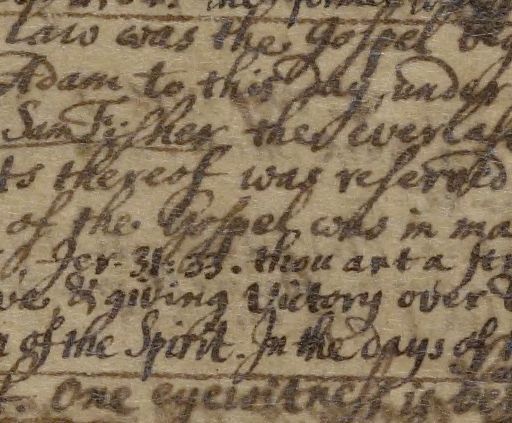 Law was the Gospel
Adam to this day, under
Sam Fisher the everlast
ts thereof was reserved
of the Gospel, was in ma
Jer. 31.33. thou art a str
ve, & giving Victory over
of the Spirit. In the days of
One eyewitness is be